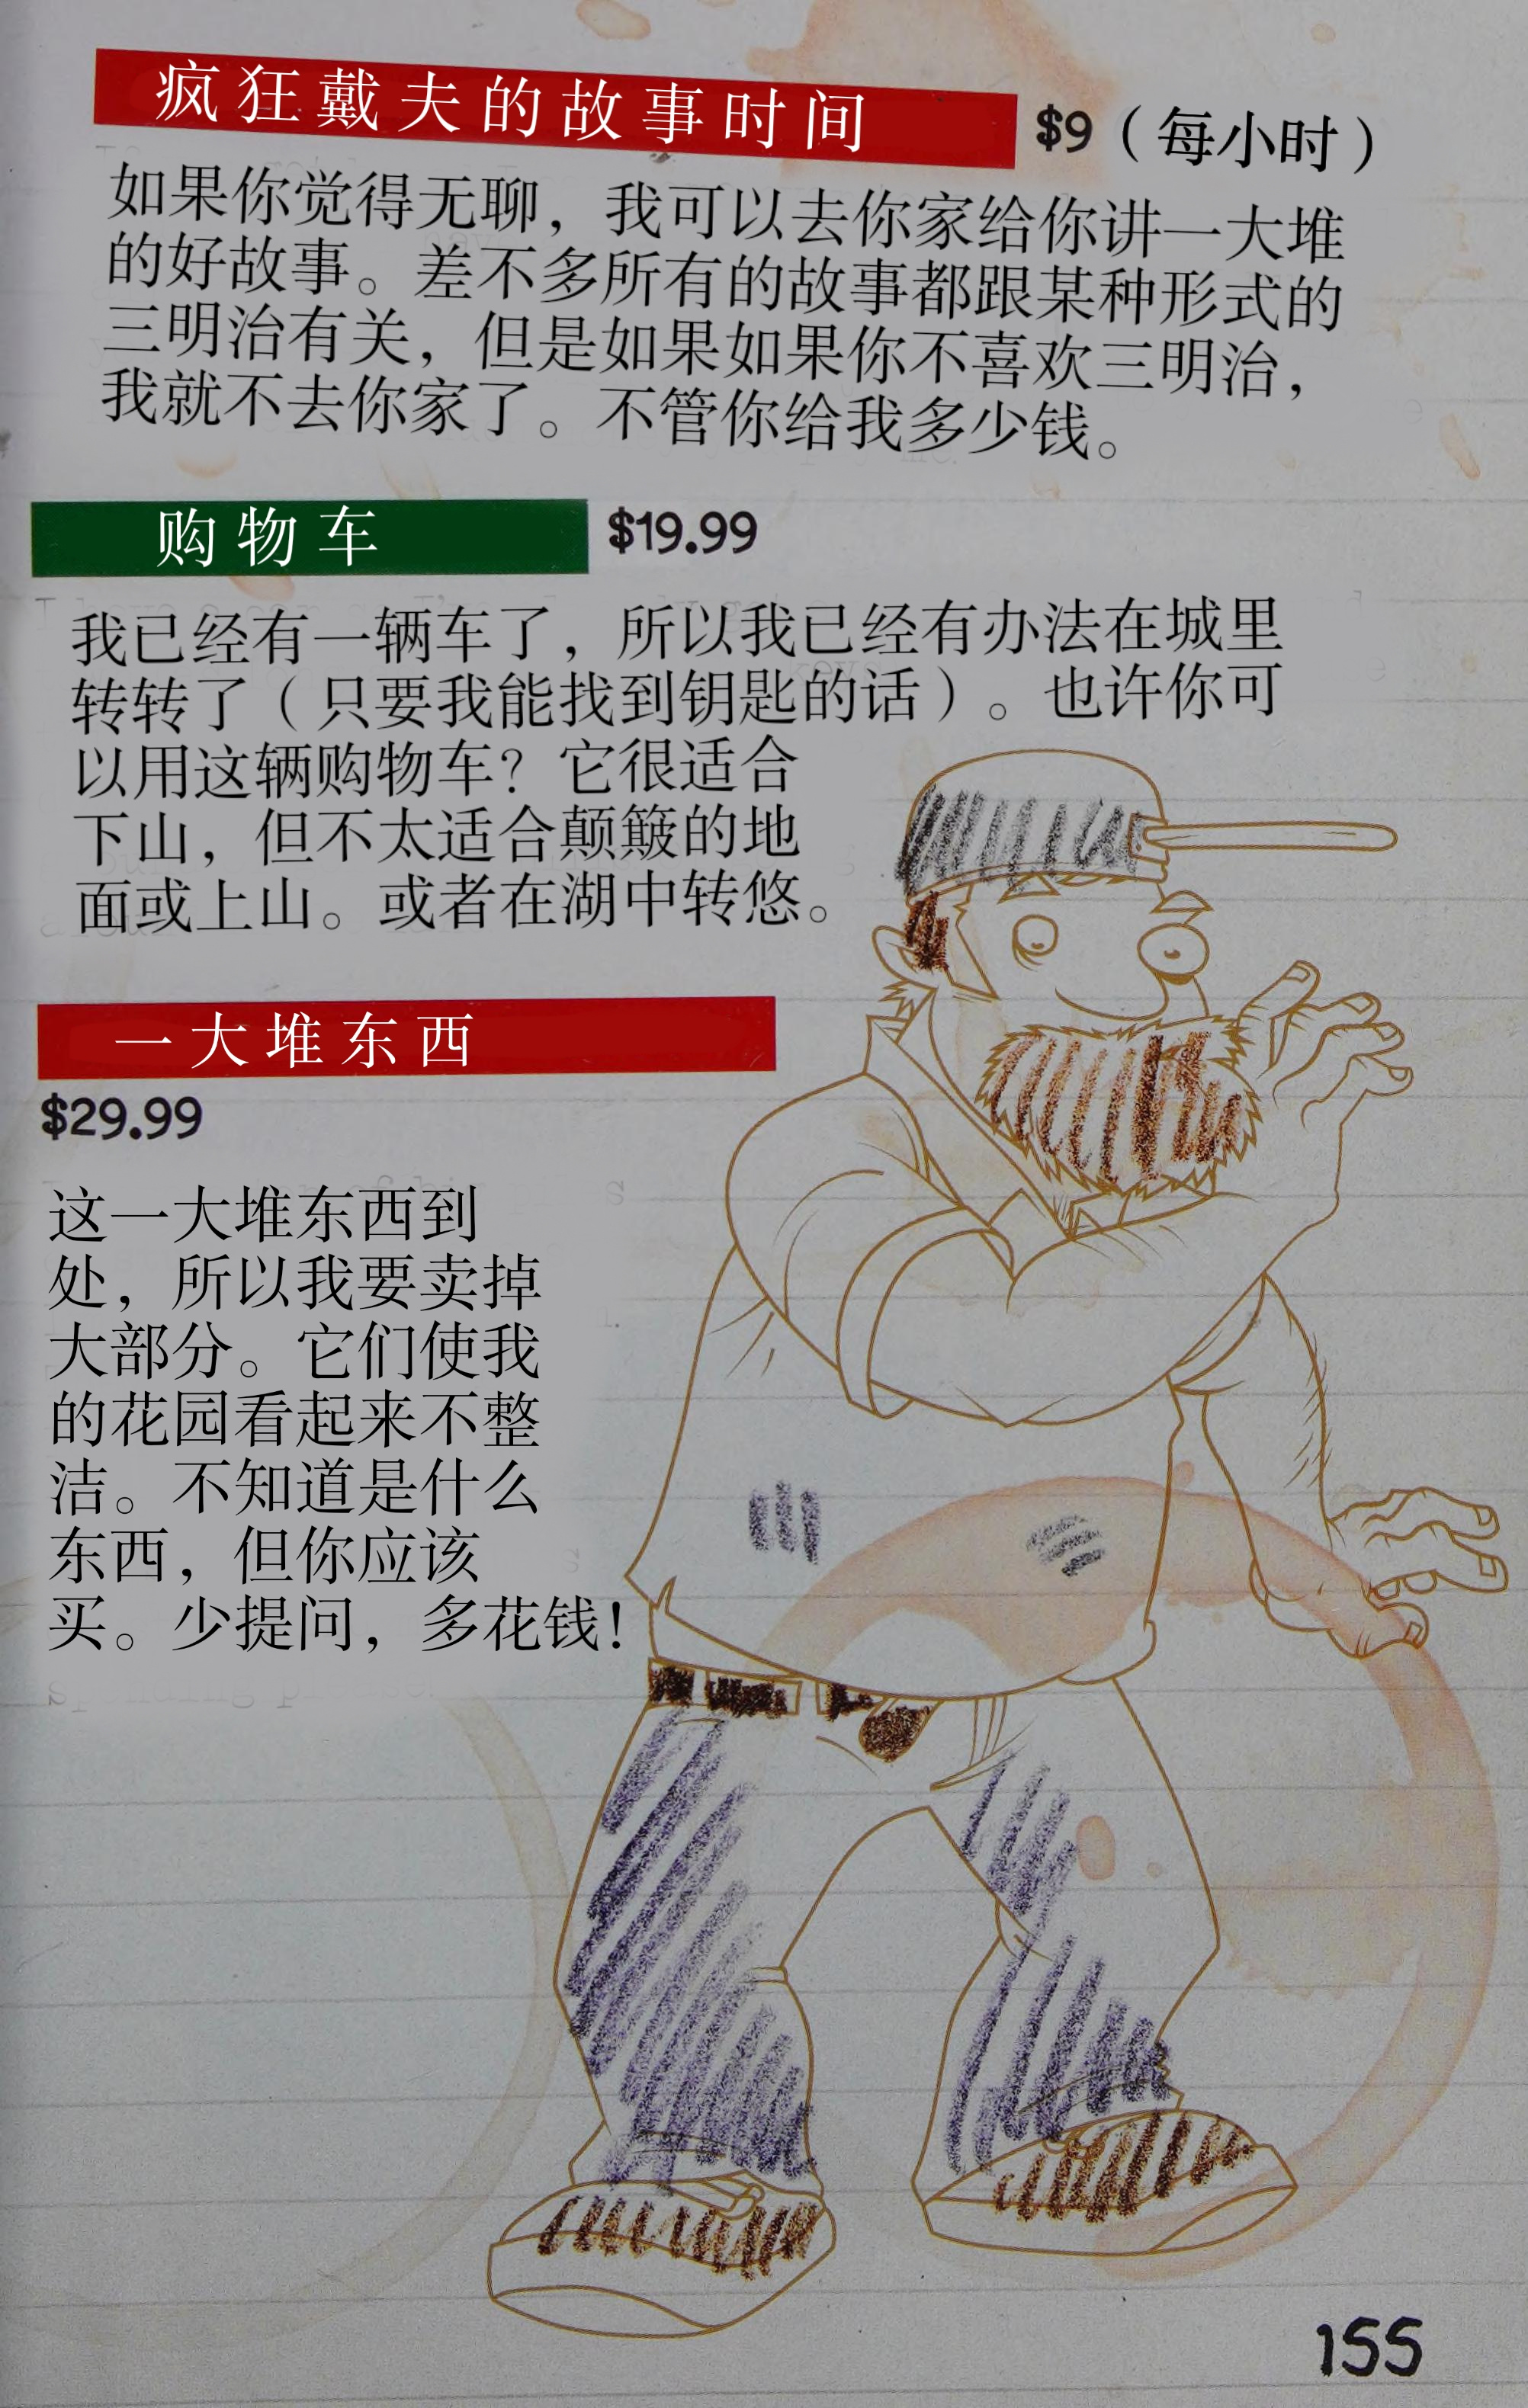 疯狂戴夫的故事时间 $9（每小时）
如果你觉得无聊，我可以去你家给你讲一大堆
的好故事。差不多所有的故事都跟某种形式的
三明治有关，但是如果如果你不喜欢三明治，
我就不去你家了。不管你给我多少钱。
购物车 $19.99
我已经有一辆车了，所以我已经有办法在城里
转转了（只要我能找到钥匙的话）。也许你可
以用这辆购物车？它很适合
下山，但不太适合颠簸的地
面或上山。或者在湖中转悠。
一大堆东西
$29.99
这一大堆东西到
处，所以我要卖掉
大部分。它们使我
的花园看起来不整
洁。不知道是什么
东西，但你应该
买。少提问，多花钱！
155